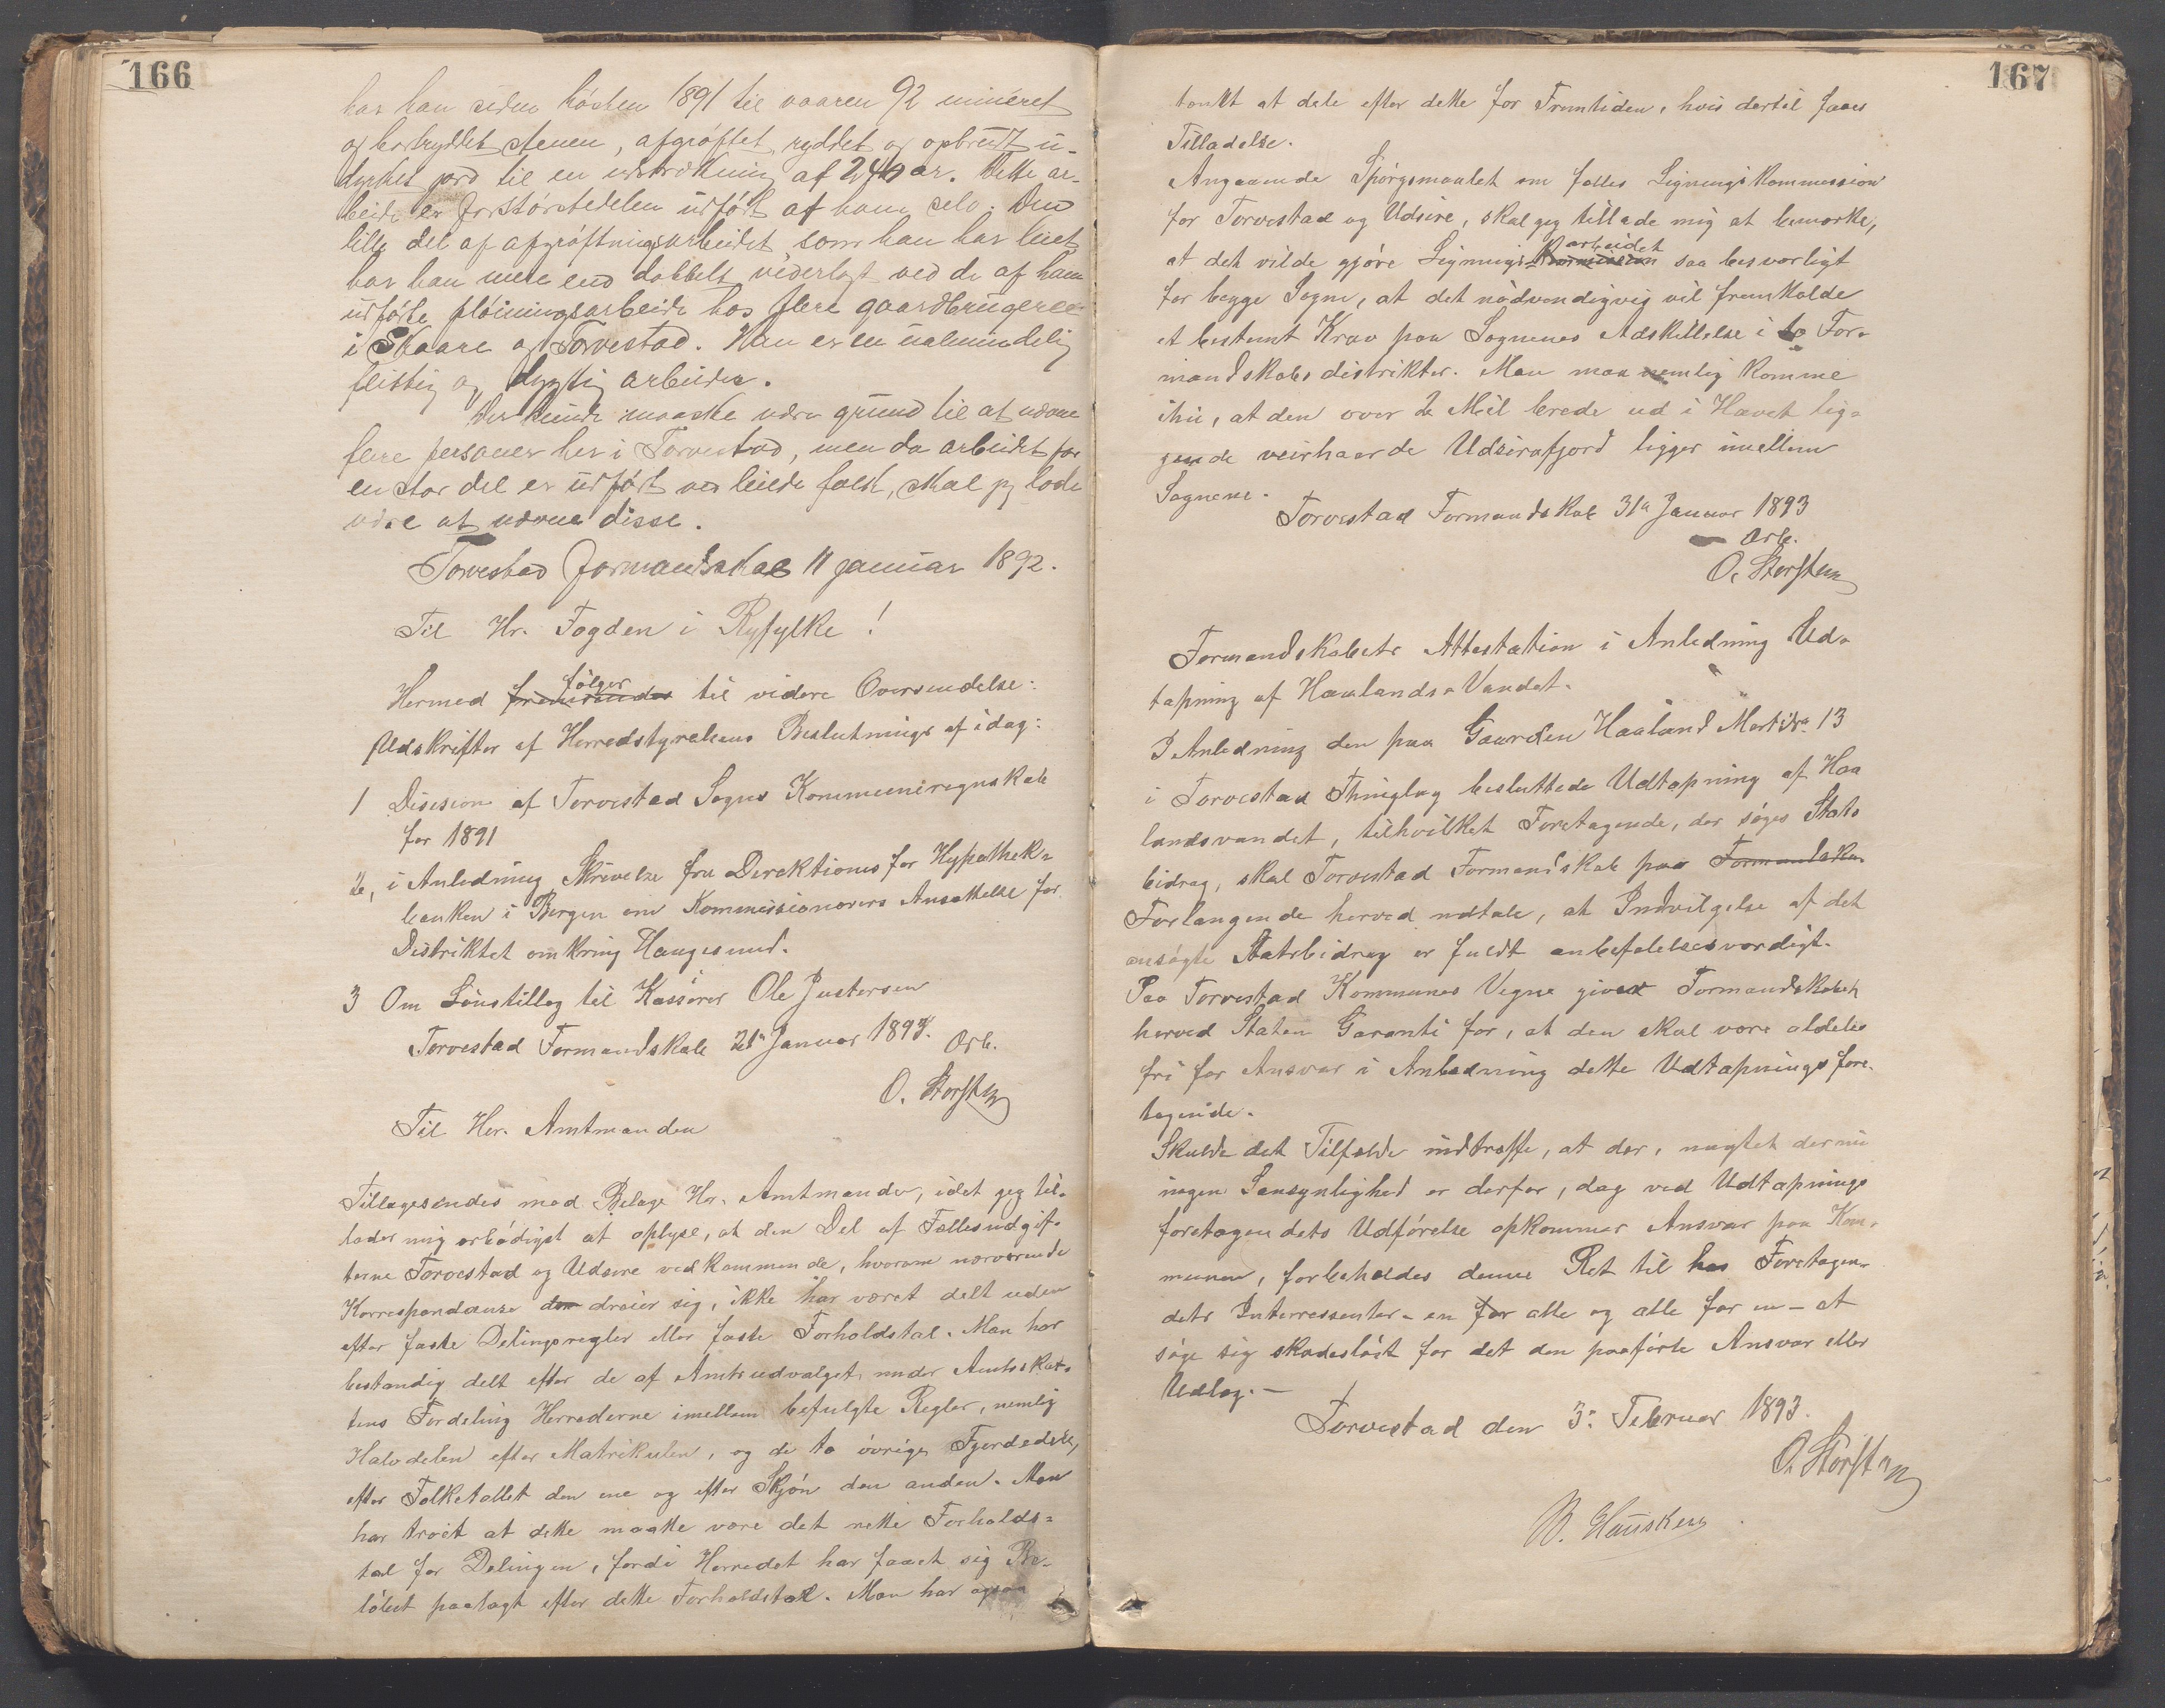 166
har han siden hösten 1891 til vaaren 92 mineret
og bortryddet stenen, afgröftet, ryddet og opbrudt u-
dyrket jord til en udstrækning af 240 ar. Dette ar-
beide er for störstedelen udfört af ham selv. Den
lille del af afgröftningsarbeidet som han har leiet
har han mere end dobbelt vederlagt ved de af ham
udförte plöiningsarbeide hos flere gaardbrugere
i Skaare og Torvestad. Han er en ualmindelig
flittig og dygtig arbeider.
Der kunde maaske være grund til at nævne
flere personer her i Torvestad, men da arbeidet for
en stor del er udfört ved leiede folk, skal jeg lade
være at nævne disse.
Torvestad Formandskab 11 januar 1892.
Til Hr. Fogden i Ryfylke!
Hermed fölger til videre Oversendelse:
Udskrifter af Herredstyrelsens Beslutninger af idag:
1 Disision af Torvestad Sogns Kommuneregnskab
for 1891
2, i Anledning Skrivelse fra Direktionen for Hypothek-
banken i Bergen om Kommissionærers Ansættelse for
Distriktet omkring Haugesund.
3 Om Lönstillæg til Kasserer Ole Justersen
Torvestad Formandskab 21de Januar 1893. Örb.
O. Storsten
Til Her. Amtmanden
Tilbagesendes med Bilage Hr. Amtmanden, idet jeg til-
lader mig erbödigst at oplyse, at den Del af Fællesudgif-
terne Torvestad og Udsire vedkommende, hvorom nærværende
Korrespondanse dreier sig, ikke har været delt uden
efter faste Delingsregler eller faste Forholdstal. Man har
bestandig delt efter de af Amtsudvalget under Amtsskat-
tens Fordeling Herrederne imellem befulgte Regler, nemlig
Halvdelen efter Matrikulen, og de to övrige Fjerdedele,
efter Folketallet den ene og efter Skjön den anden. Man
har troet at dette maatte være det rette Forholds-
tal for Delingen, fordi Herredet har faaet sig Be-
löbet paalagt efter dette Forholdstal. Man har ogsaa
167
tænkt at dele efter dette for Fremtiden, hvis dertil faaes
Tilladelse.
Angaaende Spörgsmaalet om fælles Ligningskommission
for Torvestad og Udsire, skal jeg tillade mig at bemærke,
at det vilde gjöre Lignings-arbeidet saa besværligt
for begge Sogne, at det nödvendigvis vil fremkalde
et bestemt Krav paa Sognenes Adskillelse i to For-
mandskabsdistrikter. Man maa nemlig komme
ihu, at den over 2 Mil brede ud i Havet lig-
gende veirhaarde Udsirafjord ligger imellem
Sognene.
Torvestad Formandskab 31te Januar 1893
Örb.
O. Storsten
Formandskabets Attestation i Anledning Ud-
tapning af Haalands-Vandet.
I Anledning den paa Gaarden Haaland Mart. No. 13
i Torvestad Thinglag besluttede Udtapning af Haa
landsvandet, tilhvilket Foretagende, der söges Stats
bidrag, skal Torvestad Formandskab paa Formandska-
Forlangende herved udtale, at Indvilgelse af det
ansögte Statsbidrag er fuldt anbefalelsesværdigt.
Paa Torvestad Kommunes Vegne giver Formandskabet
herved Staten Garanti for, at den skal være aldeles
fri for Ansvar i Anledning dette Udtapningsfore-
tagende.
Skulde det Tilfælde indtræffe, at der, uagtet der nu
ingen Sansynlighed er derfor, dog ved Udtapnings
foretagendets Udförelse opkommer Ansvar paa Kom-
munen, forbeholdes denne Ret til hos Foretagen-
dets Interressenter - en for alle og alle for en - at
söge sig skadeslöst for det den paaförte Ansvar eller
Udlæg. -
Torvestad den 3. Februar 1893.
O. Storsten
B. Hausken